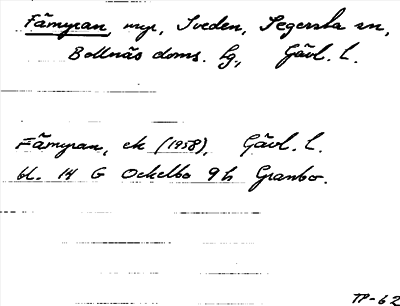 Fämyran, myr, Sveden, Segersta sn,
Bollnäs doms. lg., Gävl. l.
Fämyran, ek (1958), Gävl. l.
bl. 14 G Ockelbo 9 h Granbo.
TP-62